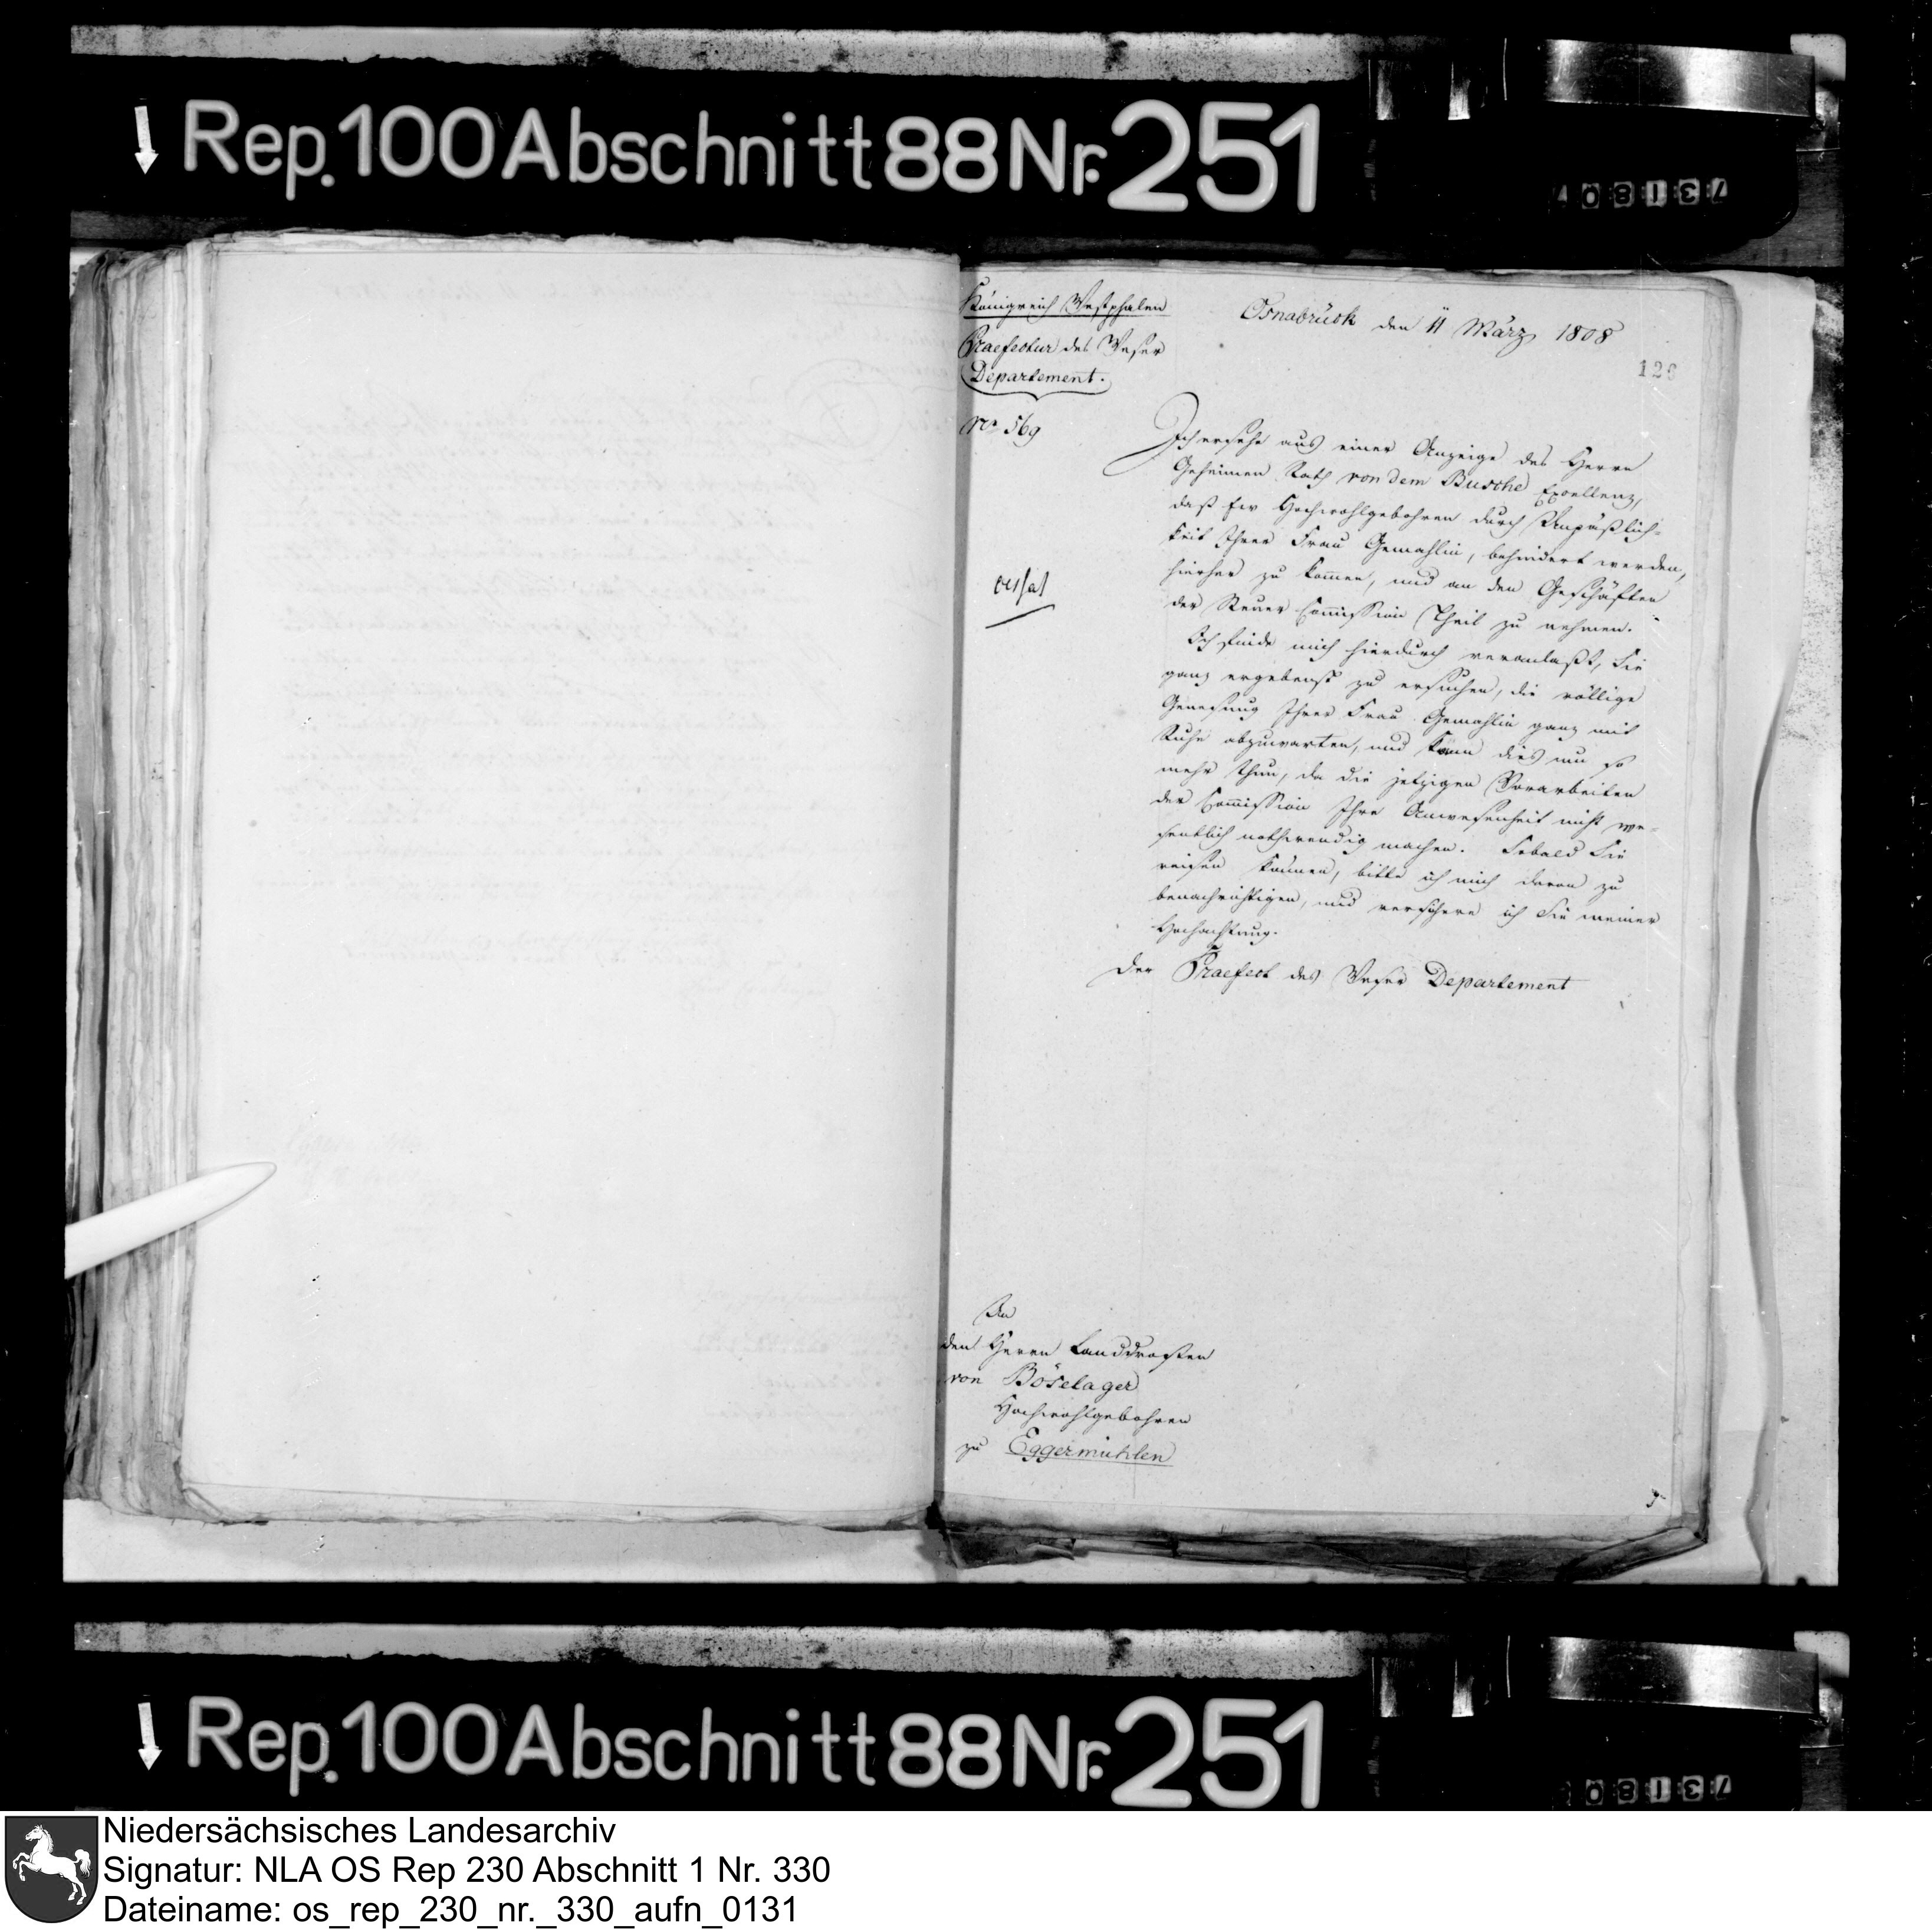 Rep. 100 Abschnitt 88 Nr. 251
73180
Königreich Westphalen
Praefectur des Weser
Departement.
No 569
Osnabrück den 11 März 1808
Ich ersehe aus einer Anzeige des Herrn
Geheimen Rath von dem Busche Excellenz,
daß Ew Hochwohlgebohren durch Unpäßlich-
keit Ihrer Frau Gemahlin, behindert werden,
hierher zu kom̄en, und an den Geschäften
der Steuer Com̄ission Theil zu nehmen.
Ich finde mich hierdurch veranlaßt, Sie
ganz ergebenst zu ersuchen, die völlige
Genesung Ihrer Frau Gemahlin ganz mit
Ruhe abzuwarten, und kann dies um so
mehr thun, da die jetzigen Vorarbeiten
der Com̄ission Ihre Anwesenheit nicht we-
sentlich nothwendig machen. Sobald Sie
reisen können, bitte ich mich davon zu
benachrichtigen, und versichere ich Sie meiner
Hochachtung.
Der Praefect des Weser Departement
An
den Herrn Landdrosten
von Böselager
Hochwohlgebohren
zu Eggermühlen
Rep. 100 Abschnitt 88 Nr. 251
73180
Niedersächsisches Landesarchiv
Signatur: NLA OS Rep 230 Abschnitt 1 Nr. 330
Dateiname: os_rep_230_nr._330_aufn_0131